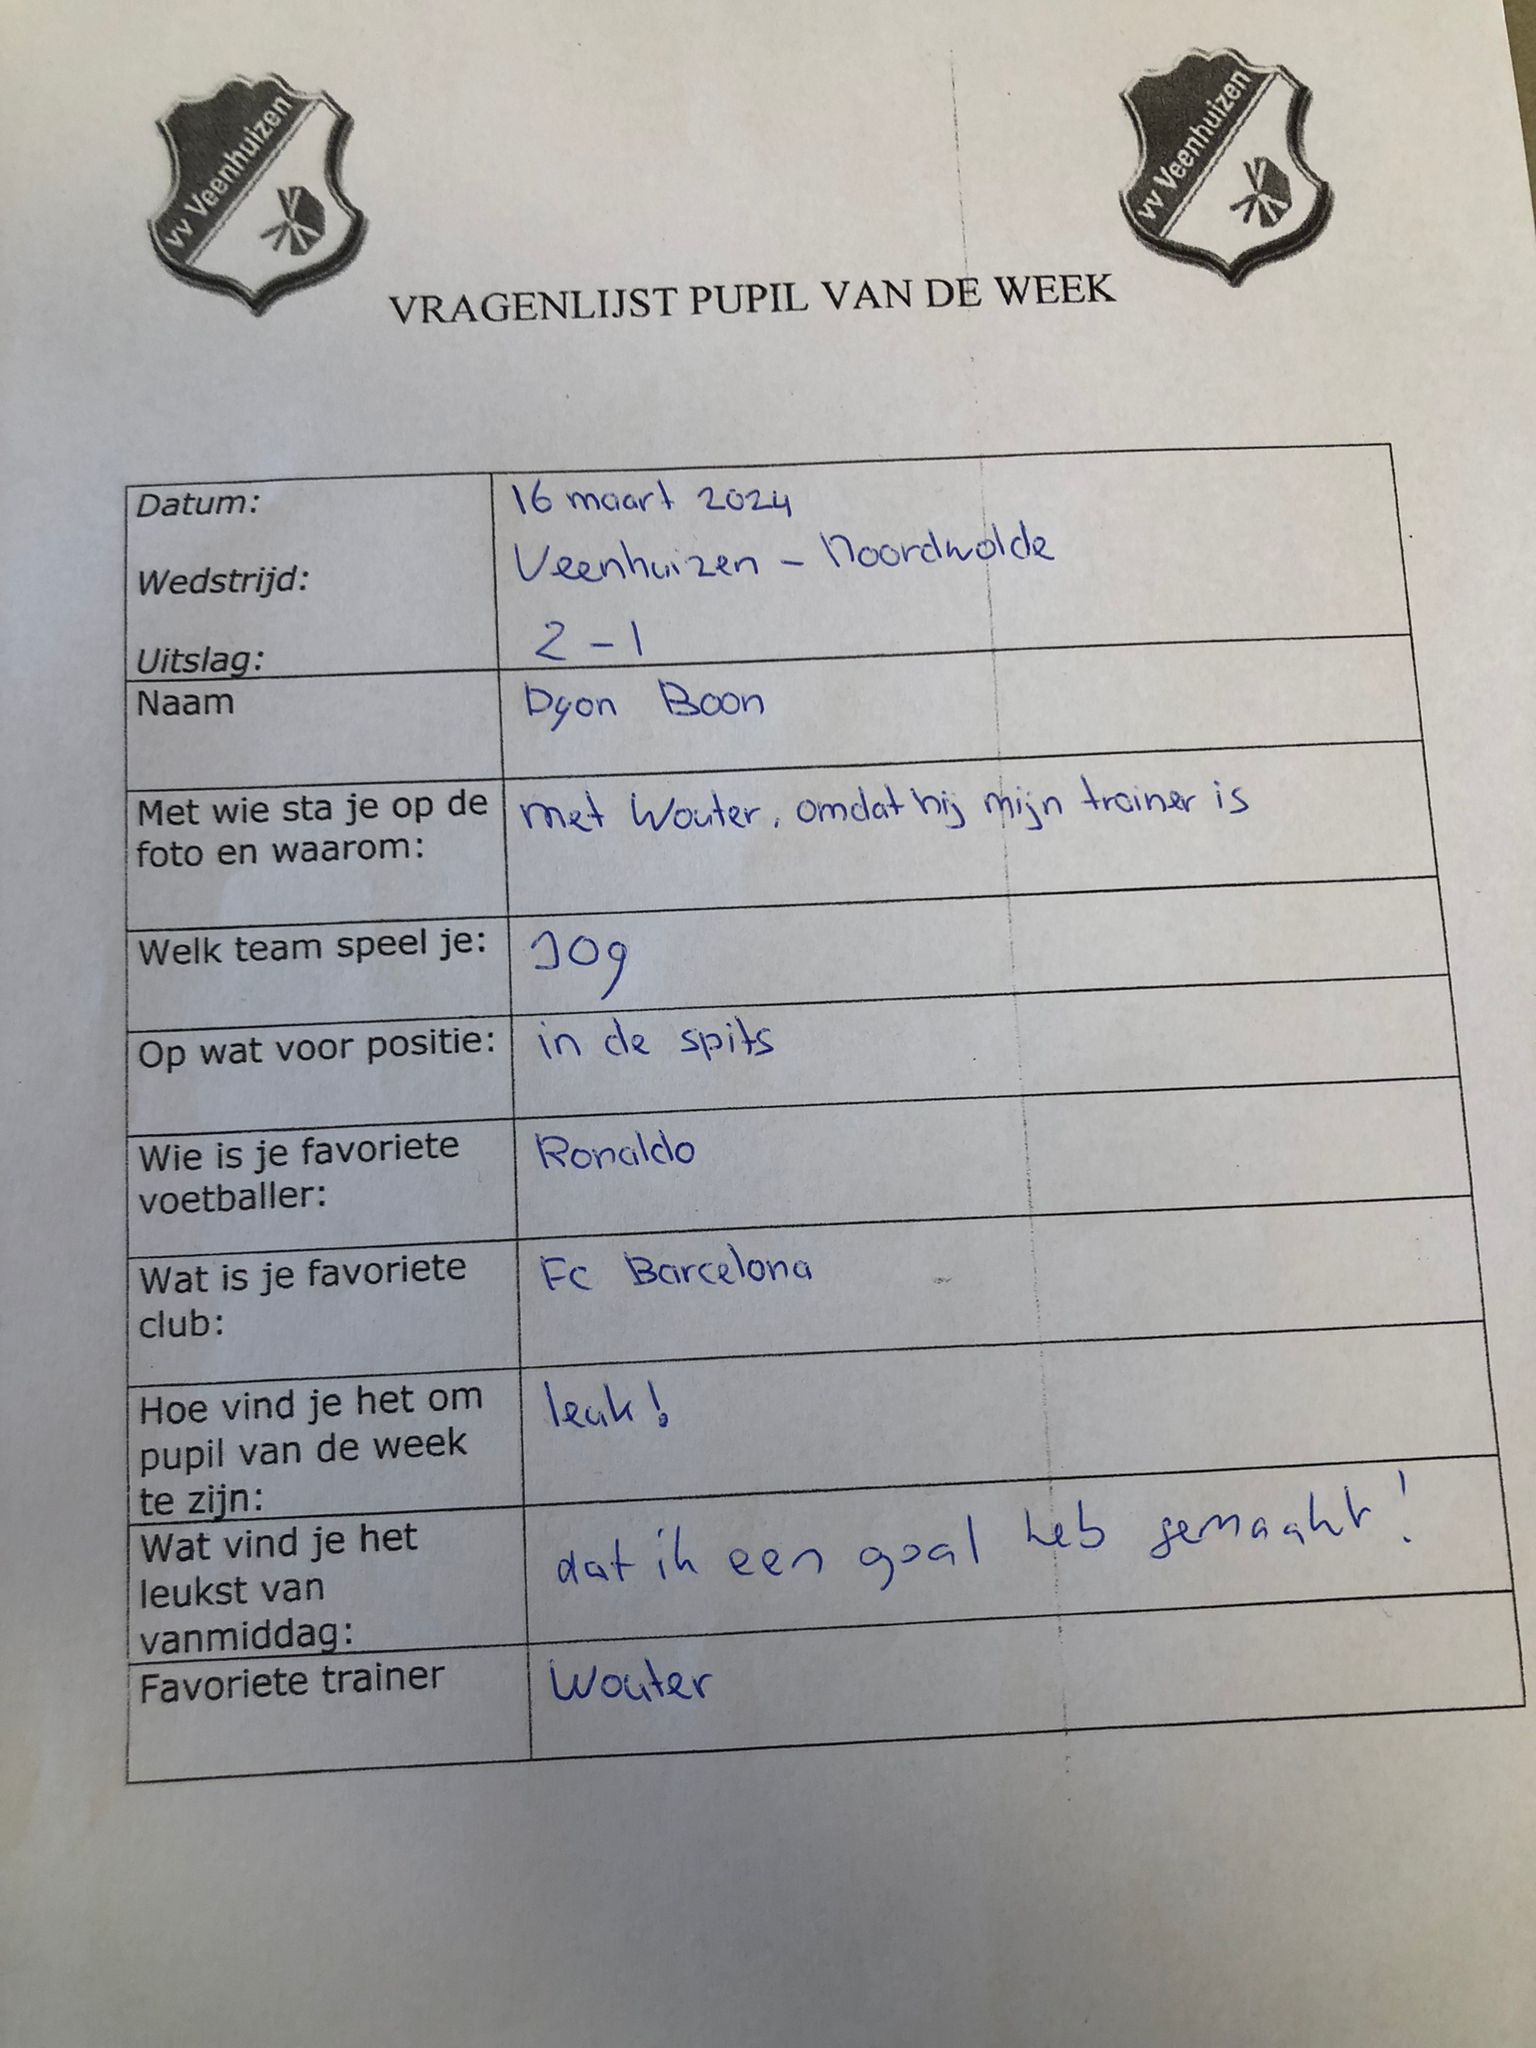 vv Veenhuizen
vv Veenhuizen
VRAGENLIJST PUPIL VAN DE WEEK
Datum: 16 maart 2024
Wedstrijd: Veenhuizen - Noordwolde
Uitslag: 2-1
Naam Dyon Boon
Met wie sta je op de foto en waarom: met Wouter, omdat hij mijn trainer is
Welk team speel je: JO9
Op wat voor positie: in de spits
Wie is je favoriete voetballer: Ronaldo
Wat is je favoriete club: Fc Barcelona
Hoe vind je het om pupil van de week te zijn: leuk!
Wat vind je het leukst van vanmiddag: dat ik een goal heb gemaakt!
Favoriete trainer Wouter